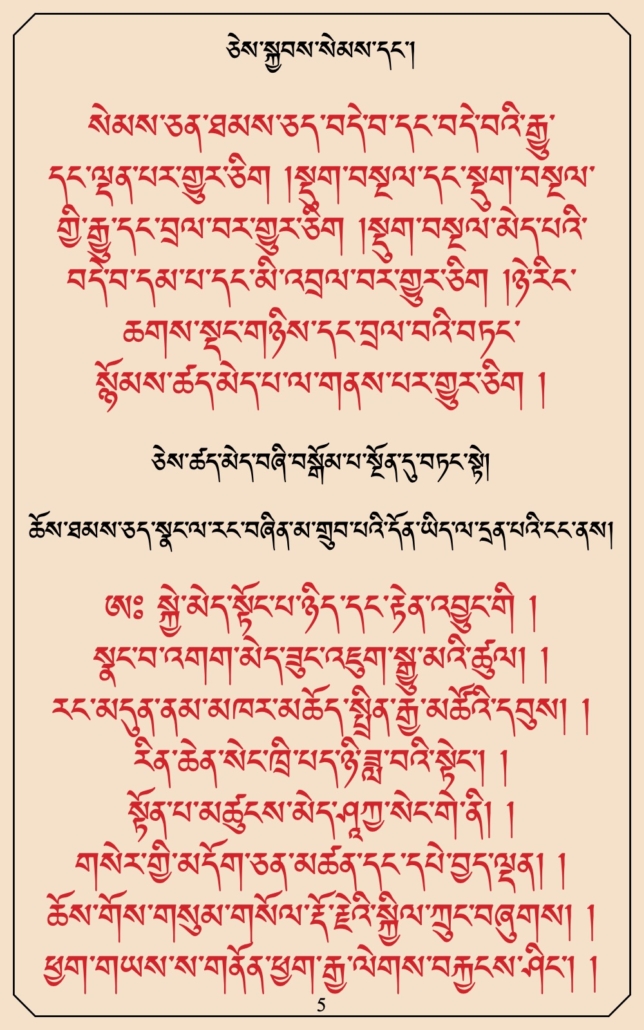 ཅེས་སྐྱབས་སེམས་དང་།
སེམས་ཅན་ཐམས་ཅད་བདེ་བ་དང་བདེ་བའི་རྒྱུ་
དང་ལྡན་པར་གྱུར་ཅིག །སྡུག་བསྔལ་དང་སྡུག་བསྔལ་
གྱི་རྒྱུ་དང་བྲལ་བར་གྱུར་ཅིག །སྡུག་བསྔལ་མེད་པའི་
བདེ་བ་དམ་པ་དང་མི་འབྲལ་བར་གྱུར་ཅིག །ཉེ་རིང་
ཆགས་སྡང་གཉིས་དང་བྲལ་བའི་བཏང་
སྙོམས་ཚད་མེད་པ་ལ་གནས་པར་གྱུར་ཅིག །
ཅེས་ཚད་མེད་བཞི་བསྒོམ་པ་སྔོན་དུ་བཏང་སྟེ།
ཆོས་ཐམས་ཅད་སྣང་ལ་རང་བཞིན་མ་གྲུབ་པའི་དོན་ཡིད་ལ་དྲན་པའི་ངང་ནས།
ཨཿ སྐྱེ་མེད་སྟོང་པ་ཉིད་དང་རྟེན་འབྱུང་གི །
སྣང་བ་འགག་མེད་ཟུང་འཇུག་སྒྱུ་མའི་ཚུལ། །
རང་མདུན་ནམ་མཁར་མཆོད་སྤྲིན་རྒྱ་མཚོའི་དབུས། །
རིན་ཆེན་སེང་ཁྲི་པད་ཉི་ཟླ་བའི་སྟེང་། །
སྟོན་པ་མཚུངས་མེད་ཤཱཀྱ་སེང་གེ་ནི། །
གསེར་གྱི་མདོག་ཅན་མཚན་དང་དཔེ་བྱད་ལྡན། །
ཆོས་གོས་གསུམ་གསོལ་རྡོ་རྗེའི་སྐྱིལ་ཀྲུང་བཞུགས། །
ཕྱག་གཡས་ས་གནོན་ཕྱག་རྒྱ་ལེགས་བརྐྱངས་ཤིང་། །
5